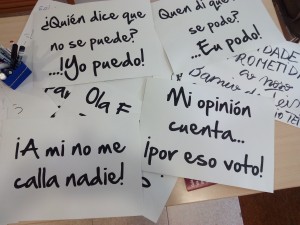 ¿Quién dice que
no se puede?
...¡Yo puedo!
Quen di que
se pode?
...Eu podo!
DADE
ROMETID
Ola
Mi opinión
cuenta...
¡por eso voto!
¡A mi no me
calla nadie!